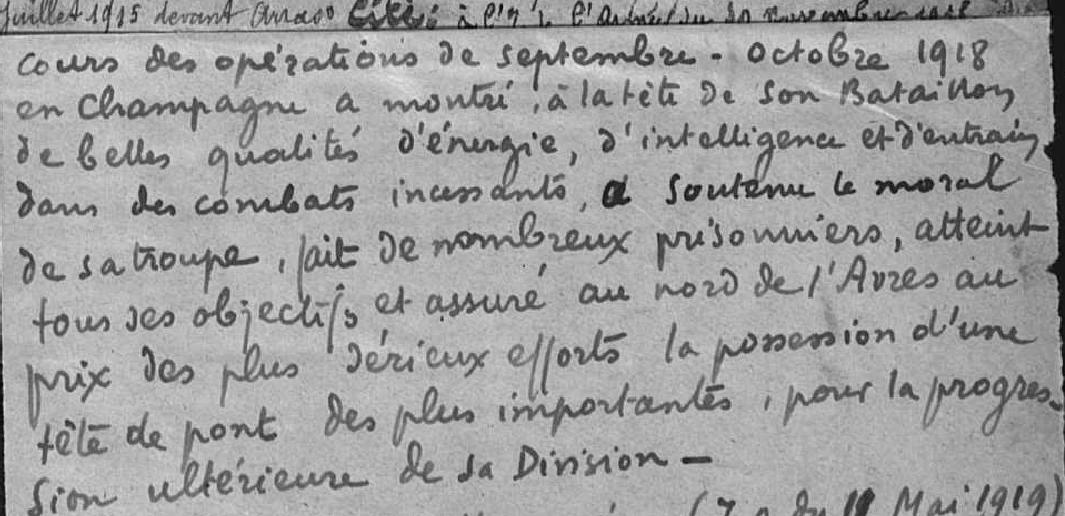 Juillet 1915 devant Arras Cité à l'
cours des opérations de septembre - octobre 1918
en Champagne a montré, à la tête de son Bataillon
de belles qualités d'énergie, d'intelligence et d'entrain
dans des combats incessants, a soutenu le moral
de sa troupe, fait de nombreux prisonniers, atteint
tous ses objectifs et assuré au nord de l'Avres au
prix des plus sérieux efforts la possession d'une
tête de pont des plus importantes, pour la progres-
sion ultérieure de sa Division -
du 11 Mai 1919)